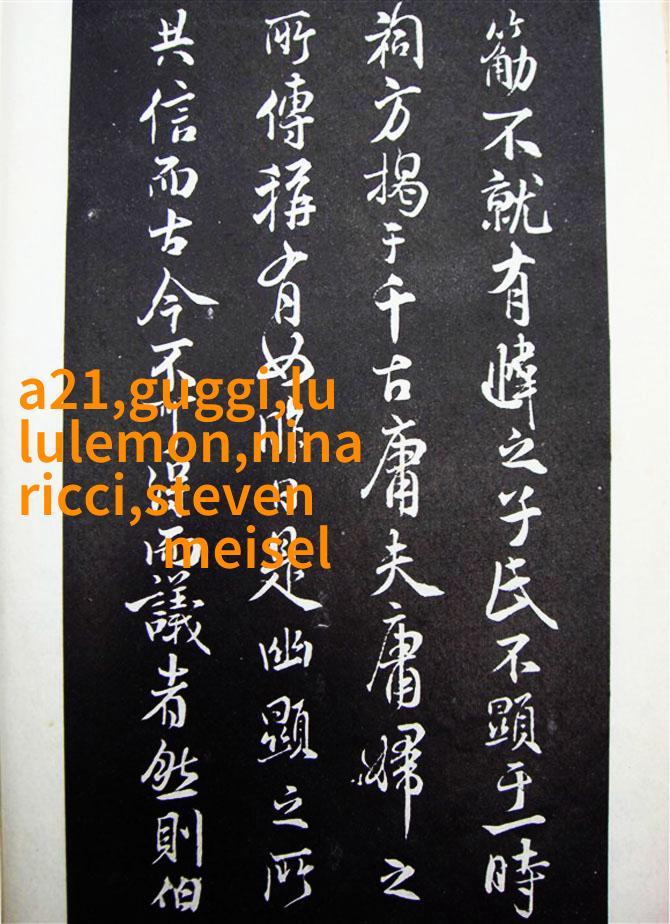 不就有之氏不顯于一時
祠方揭于千古庸夫庸婦之
所傳稱有如昨日是幽顯之所
共信而古今不而議者然則伯
a21,guggi,lu
lulemon,nina
ricci,steven
meisel